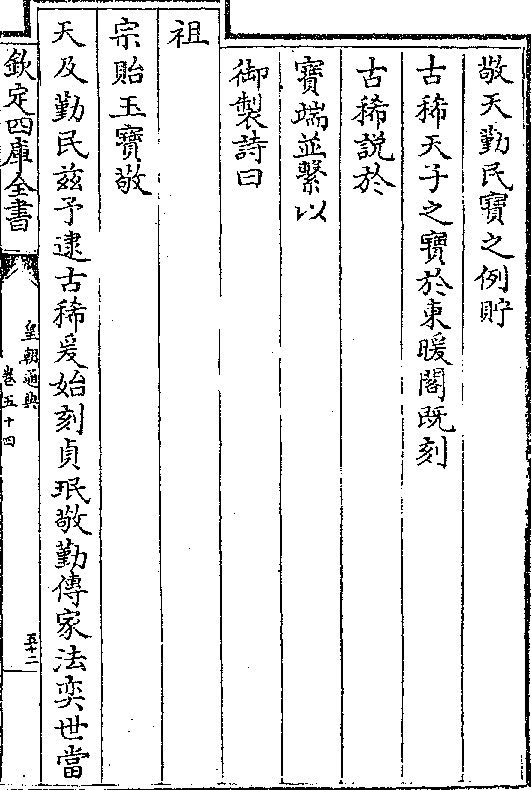 敬天勤民寳之例貯
古稀天子之寳於東暖閣既刻
古稀說於
寳端並繫以
御製詩曰
祖
宗貽玉寳敬
天及勤民兹予逮古稀爰始刻貞珉敬勤傳家法奕世當
欽定四庫全書
皇朝通典
卷五十四
五十二